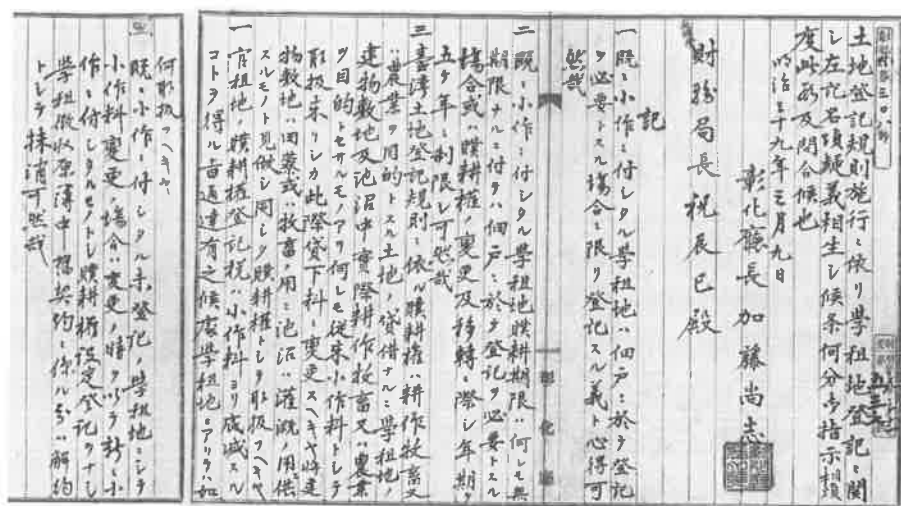 土地登記規則施行ニ依リ學租地登記ニ関
シ左記名項疑義相生シ候条何分ノ御指示相
度此段及問合候也
明治三十九年三月九日
彰化廳長加藤尚志
財務局長祝辰巳殿
記
一既ニ小作ニ付シタル學租地ハ佃戸ニ於テ登記
ヲ必要トスル塲合ニ限リ登記スル義ト心得可
然哉
二既ニ小作ニ付シタル學租地贌耕期限ハ何レモ無
期限ナルニ付テハ佃戸ニ於テ登記ヲ必要トスル
塲合或ハ贌耕権ノ変更及移轉ノ際シ年期ヲ
五ケ年ニ制限シ可然哉
三臺湾土地登記規則ニ依ル贌耕権ハ耕作牧畜又
ハ農業ヲ用的トスル土地ノ貸借ナルニ學租地ノ
建物敷地及池沼中實際耕作牧畜又ハ農業
ヲ目的トセサルモノアリ何レモ従来小作料トシテ
取扱来リシカ此際貸下料ニ変更スヘキヤ将建
物敷地ハ田藁或ハ牧畜ノ用ニ池沼ハ灌漑ノ用ニ供
スルモノト見做シ同シク贌耕権トシテ取扱フヘキヤ
一官租地ノ贌耕権登記税ハ小作料ヨリ成減スル
コトヲ得ル旨通達有之候處學租地ニアリテハ如
何取扱フヘキヤ
既ニ小作ニ付シタル未登記ノ學租地ニシテ
小作料変更ノ塲合ハ変更ノ時ヲ以テ新ニ小
作ニ付シタルモノトシ贌耕権設定登記ヲナシ
學租徴収原簿中旧契約ニ係ル分ハ解約
トシテ抹消可然哉
彰化廳